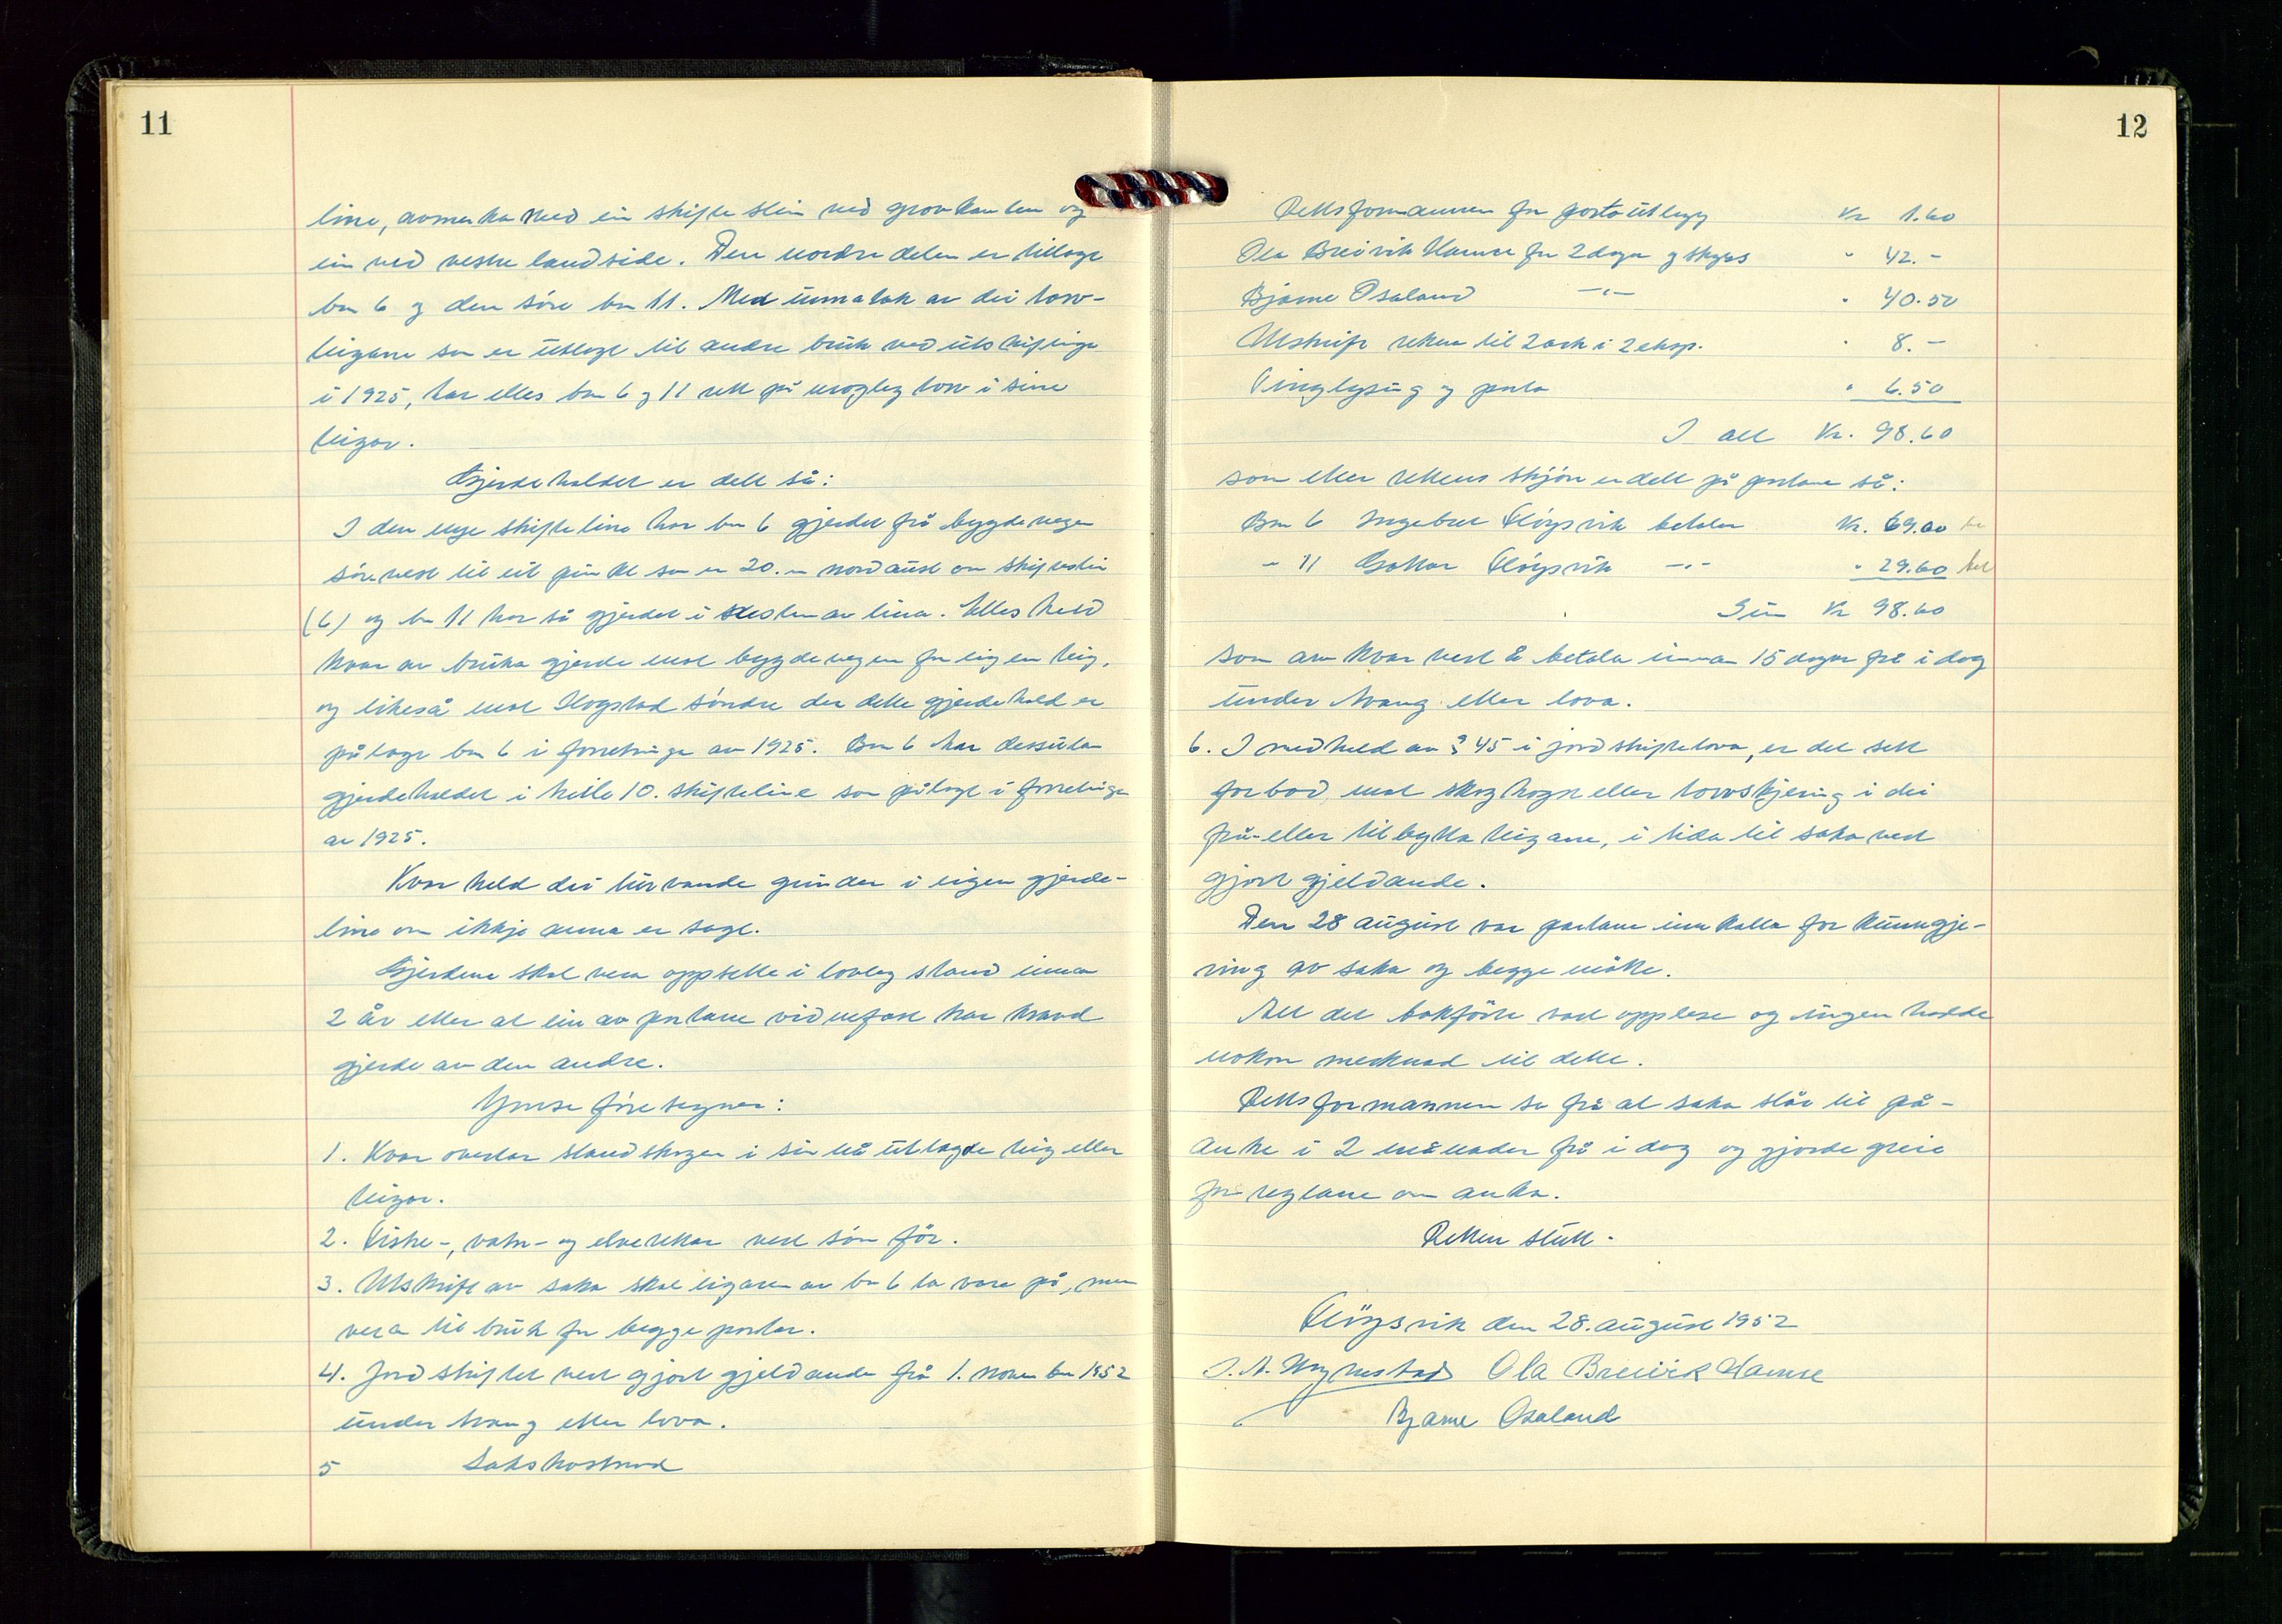 11
line, avmerka med ein skiftestein ved grovkanten og
ein ved vestre landside. Den nordre delen er tillagt
bn 6 og den søre bn 11. Med unnatak av dei torv-
teigane som er utlagt til andre bruk ved utskiftinga
i 1925, har elles bn 6 og 11 rett på urogleg torv i sine
teigar.
Gjerdehaldet er delt så:
I den nye skifteline har bn 6 gjerdet frå bygdevegen
sørvest til eit punkt som er 20. m nordaust om skiftestein
(6) og bn 11 har så gjerdet i resten av lina. Elles held
kvar av bruka gjerde mot bygdevegen for eigen teig,
og likeså mot Skogstad søndre der dette gjerdehald er
pålagt bn 6 i forretninga av 1925. Bn 6 har dessutan
gjerdehaldet i heile 10. skifteline som pålagt i forretninga
av 1925.
Kvar held dei turvande grinder i eigen gjerde-
line om ikkje anna er sagt.
Gjerdene skal vera oppsette i lovleg stand innan
2 år etter at ein av partane vidnefast har kravd
gjerde av den andre.
Ymse føresegner:
1. Kvar overtar standskogen i sin nå utlagde teig eller
teigar.
2. Fiske-, vatn- og elverettar vert som før.
3. Utskrift av saka skal eigaren av bn 6 ta vare på, men
vera til bruk for begge partar.
4. Jordskiftet vert gjort gjeldande frå 1. november 1952
under tvang etter lova.
5 Sakskostnad
12
Rettsformannen for portoutlegg Kr 1.60
Ola Breivik Hamre for 2 dagar og skyss " 42.-
Bjarne Osaland -"- " 40.50
Utskrift rekna til 2 ark i 2 eksp. " 8.-
Tinglysing og porto " 6.50
I alt Kr. 98.60
som etter rettens skjøn er delt på partane så:
Bn 6 Ingebret Fløysvik betalar Kr. 69.00 be
" 11 Gottar Fløysvik -"- " 29.60 bet
Sum Kr 98.60
som av kvar vert å betala innan 15 dagar frå i dag
under tvang etter lova.
6. I medhald av § 45 i jordskiftelova, er det sett
forbod mot skoghogst eller torvskjering i dei
frå- eller tilbytta teigane, i tida til saka vert
gjort gjeldande.
Den 28 august var partane innkalla for kunngje-
ring av saka og begge møtte.
Alt det bokførte vart opplese og ingen hadde
nokon merknad til dette.
Rettsformannen sa frå at saka står til på-
anke i 2 månader frå i dag og gjorde greie
for reglane om anka.
Retten slutt.
Fløysvik den 28. august 1952
Ola Breivik Hamre
Bjarne Osaland